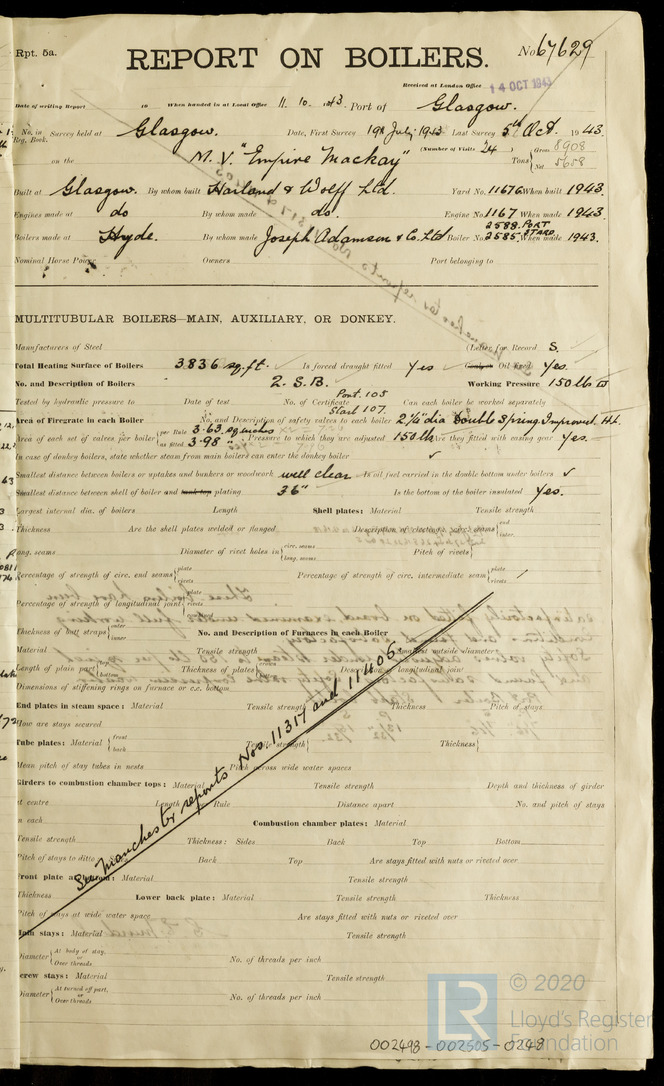 Rpt. 5a.
REPORT ON BOILERS.
No 67629
Received at London Office 14 OCT 1943
Date of writing Report 19 When handed in at Local Office 11. 10. 43. Port of Glasgow.
No. in Reg. Book. Survey held at Glasgow. Date, First Survey 19th July 1943 Last Survey 5th Oct. 1943.
on the M.V. "Empire Mackay" (Number of Visits 24) Tons { Gross 8908 Net 5658
Built at Glasgow. By whom built Harland & Wolff Ltd. Yard No. 1167G When built 1943.
Engines made at do By whom made do. Engine No. 1167 When made 1943.
Boilers made at Hyde. By whom made Joseph Adamson & Co. Ltd Boiler No. 2588 PORT 2585 STARD When made 1943.
Nominal Horse Power Owners Port belonging to
MULTITUBULAR BOILERS—MAIN, AUXILIARY, OR DONKEY.
Manufacturers of Steel (Letter for Record S.
Total Heating Surface of Boilers 3836 sq. ft. Is forced draught fitted Yes Coal or Oil fired Yes.
No. and Description of Boilers 2. S.B. Working Pressure 150 lbs
Tested by hydraulic pressure to Date of test No. of Certificate Port. 105 Starb 107. Can each boiler be worked separately
Area of Firegrate in each Boiler No. and Description of safety valves to each boiler 2¼" dia Double Spring Improved H.L.
Area of each set of valves per boiler { per Rule 3.63 sq. inches as fitted 3.98 " Pressure to which they are adjusted 150 lbs Are they fitted with easing gear Yes.
In case of donkey boilers, state whether steam from main boilers can enter the donkey boiler ✓
Smallest distance between boilers or uptakes and bunkers or woodwork well clear Is oil fuel carried in the double bottom under boilers ✓
Smallest distance between shell of boiler and tank top plating 36" Is the bottom of the boiler insulated Yes.
Largest internal dia. of boilers Length Shell plates: Material Tensile strength
Thickness Are the shell plates welded or flanged Description of riveting: circ. seams { end inter.
long. seams Diameter of rivet holes in { circ. seams long. seams Pitch of rivets {
Percentage of strength of circ. end seams { plate rivets Percentage of strength of circ. intermediate seam { plate rivets
Percentage of strength of longitudinal joint { plate rivets combined
Thickness of butt straps { outer inner No. and Description of Furnaces in each Boiler
Material Tensile strength Smallest outside diameter
Length of plain part { top bottom Thickness of plates { Description of longitudinal joint
Dimensions of stiffening rings on furnace or c.c. bottom
End plates in steam space: Material Tensile strength Thickness Pitch of stays
How are stays secured
Tube plates: Material { front back Tensile strength { Thickness {
Mean pitch of stay tubes in nests Pitch across wide water spaces
Girders to combustion chamber tops: Material Tensile strength Depth and thickness of girder
at centre Length Rule Distance apart No. and pitch of stays
in each Combustion chamber plates: Material
Tensile strength Thickness: Sides Back Top Bottom
Pitch of stays to ditto Back Top Are stays fitted with nuts or riveted over
Front plate at bottom: Material Tensile strength
Thickness Lower back plate: Material Tensile strength Thickness
Pitch of stays at wide water space Are stays fitted with nuts or riveted over
Main stays: Material Tensile strength
Diameter { At body of stay, or Over threads No. of threads per inch
Screw stays: Material Tensile strength
Diameter { At turned off part, or Over threads No. of threads per inch
See Manchester reports Nos. 11317 and 11406
© 2020
LR Lloyd's Register Foundation
002498-002505-0248